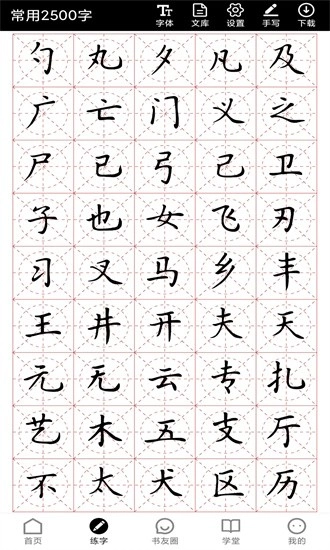 常用2500字
字体 文库 设置 手写 下载
勺 丸 夕 凡 及
广 亡 门 义 之
尸 已 弓 己 卫
子 也 女 飞 刃
习 叉 马 乡 丰
王 井 开 夫 天
元 无 云 专 扎
艺 木 五 支 厅
不 太 犬 区 历
首页 练字 书友圈 学堂 我的